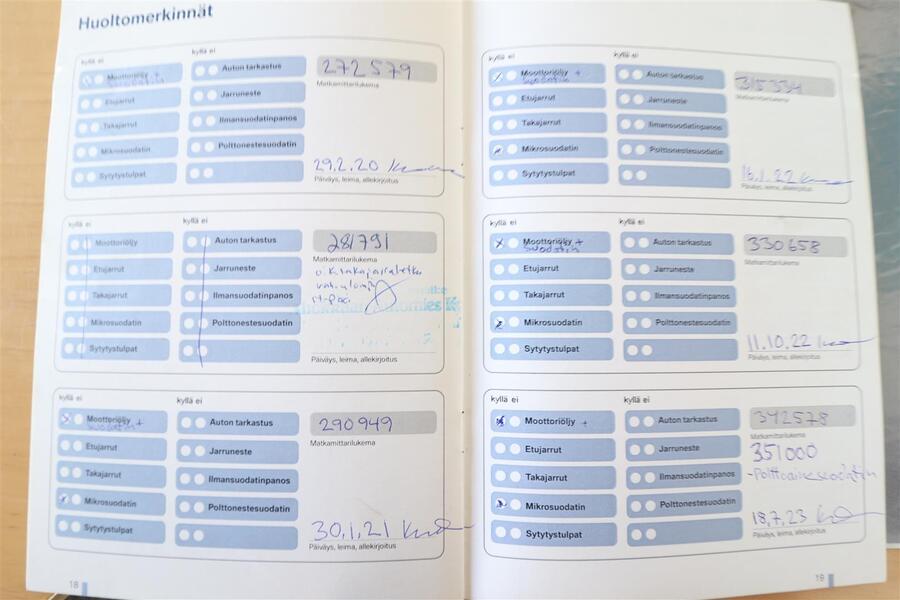 Huoltomerkinnät
kyllä ei
kyllä ei
Moottoriöljy +
suodatin
Etujarrut
Takajarrut
Mikrosuodatin
Sytytystulpat
Auton tarkastus
Jarruneste
Ilmansuodatinpanos
Polttonestesuodatin
272579
Matkamittarilukema
29.2.20
Päiväys, leima, allekirjoitus
kyllä ei
kyllä ei
Moottoriöljy
Etujarrut
Takajarrut
Mikrosuodatin
Sytytystulpat
Auton tarkastus
Jarruneste
Ilmansuodatinpanos
Polttonestesuodatin
281791
Matkamittarilukema
Päiväys, leima, allekirjoitus
kyllä ei
kyllä ei
Moottoriöljy +
suodatin
Etujarrut
Takajarrut
Mikrosuodatin
Sytytystulpat
Auton tarkastus
Jarruneste
Ilmansuodatinpanos
Polttonestesuodatin
290949
Matkamittarilukema
30.1.21
Päiväys, leima, allekirjoitus
18
kyllä ei
kyllä ei
Moottoriöljy +
suodatin
Etujarrut
Takajarrut
Mikrosuodatin
Sytytystulpat
Auton tarkastus
Jarruneste
Ilmansuodatinpanos
Polttonestesuodatin
315334
Matkamittarilukema
16.1.22
Päiväys, leima, allekirjoitus
kyllä ei
kyllä ei
Moottoriöljy +
suodatin
Etujarrut
Takajarrut
Mikrosuodatin
Sytytystulpat
Auton tarkastus
Jarruneste
Ilmansuodatinpanos
Polttonestesuodatin
330658
Matkamittarilukema
11.10.22
Päiväys, leima, allekirjoitus
kyllä ei
kyllä ei
Moottoriöljy +
Etujarrut
Takajarrut
Mikrosuodatin
Sytytystulpat
Auton tarkastus
Jarruneste
Ilmansuodatinpanos
Polttonestesuodatin
342578
Matkamittarilukema
351000
-Polttoainesuodatin
18.7.23
Päiväys, leima, allekirjoitus
19